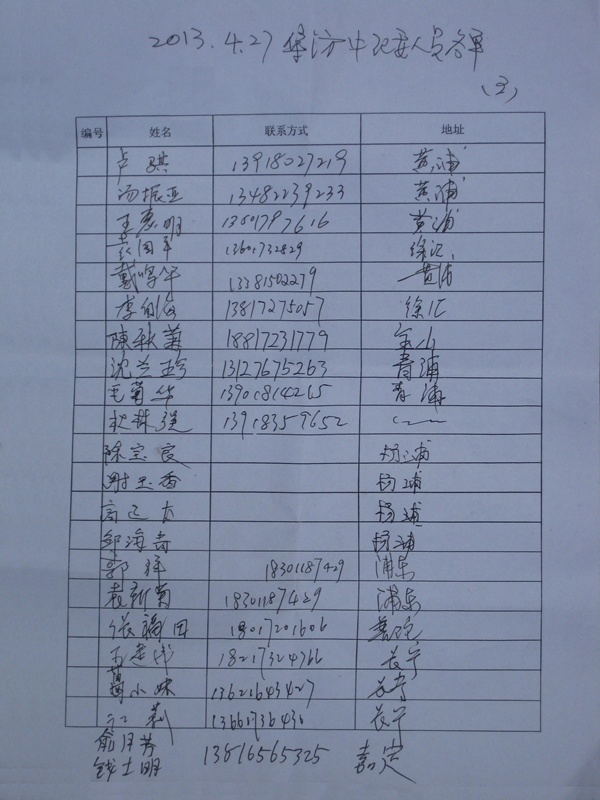 2013.4.27 集访中纪委人员名单
(3)
编号 姓名 联系方式 地址
卢琪 13918027219 黄浦
汤振亚 13482239233 黄浦
王惠明 13601797616 黄浦
13601732829 徐汇
戴鸣 13381502279 黄浦
李 13817275057 徐汇
陳秋 18817231779 金山
沈兰珍 13127675263 青浦
毛菊华 13901814265 青浦
林 13918359652
陈宝良 杨浦
谢玉香 杨浦
高 杨浦
邹海 杨浦
郭 18301187429 浦东
袁新菊 18301187429 浦东
张福田 18017201606 普陀
18217324766 长宁
小妹 13621643427 长宁
江莉 13661736430 长宁
俞月芳
钱士明 13816565325 嘉定